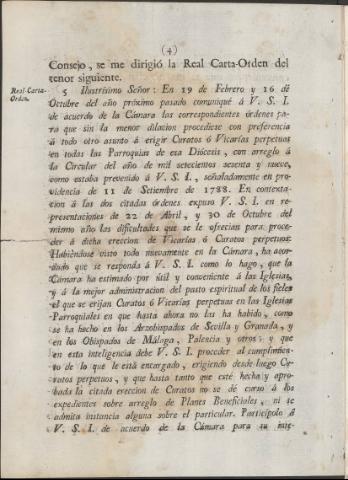 (4)
Consejo, se me dirigió la Real Carta-Orden del
tenor siguiente.
Real-Carta-
Orden.
5 Ilustrísimo Señor: En 19 de Febrero y 16 de
Octubre del año próximo pasado comuniqué á V. S. I.
de acuerdo de la Cámara las correspondientes órdenes pa-
ra que sin la menor dilacion procediese con preferencia
á todo otro asunto á erigir Curatos ó Vicarías perpetuas
en todas las Parroquias de esa Diócesis, con arreglo á
la Circular del año de mil setecientos sesenta y nueve,
como estaba prevenido á V. S. I., señaladamente en pro-
videncia de 11 de Setiembre de 1788. En contexta-
cion á las dos citadas órdenes expuso V. S. I. en re-
presentaciones de 22 de Abril, y 30 de Octubre del
mismo año las dificultades que se le ofrecian para proce-
der á dicha ereccion de Vicarías ó Curatos perpetuos.
Habiéndose visto todo nuevamente en la Cámara, ha acor-
dado que se responda á V. S. I. como lo hago, que la
Cámara ha estimado por útil y conveniente á las Iglesias,
y á la mejor administracion del pasto espiritual de los fieles
el que se erijan Curatos ó Vicarías perpetuas en las Iglesias
Parroquiales en que hasta ahora no las ha habido, como
se ha hecho en los Arzobispados de Sevilla y Granada, y
en los Obispados de Málaga, Palencia y otros; y que
en esta inteligencia debe V. S. I. proceder al cumplimien-
to de lo que le está encargado, erigiendo desde luego Cu-
ratos perpetuos, y que hasta tanto que esté hecha y apro-
bada la citada ereccion de Curatos no se dé curso á los
expedientes sobre arreglo de Planes Beneficiales, ni se
admita instancia alguna sobre el particular. Participolo á
V. S. I. de acuerdo de la Cámara para su inte-